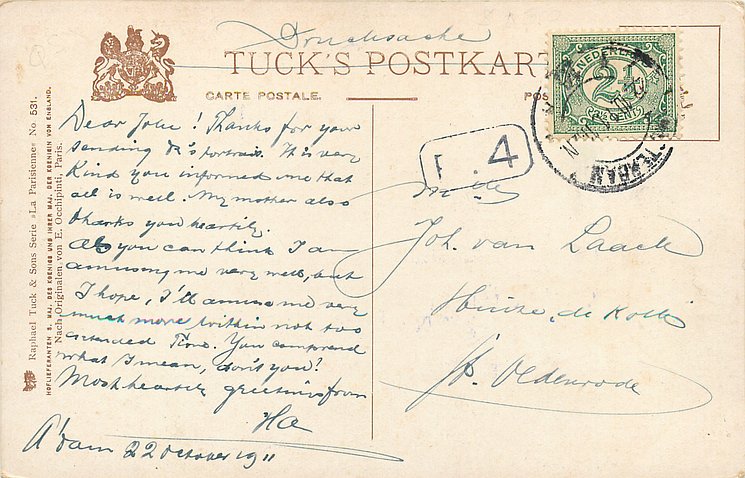 Drucksache
TUCK'S POSTKAR
CARTE POSTALE.
POS
NEDERL
2½
CENT
TERDAM
F. 4
Raphael Tuck & Sons Serie »La Parisienne« No 531.
HOFLIEFERANTEN S. MAJ. DES KOENIGS UND IHRER MAJ. DER KOENIGIN VON ENGLAND.
Nach Originalen von E. Occhipinti, Paris.
Dear Johu! Thanks for your
sending R's portrait. It is very
Kind you informed me that
all is well. My mother also
thanks you heartily.
As you can think I am
amusing me very well, but
I hope, I'll amuse me very
much more within not too
extended time. You comprend
what I mean, don't you?
Most heartily greetings from
Ha
A'dam 22 October 1911
Joh. van Laack
Huize de